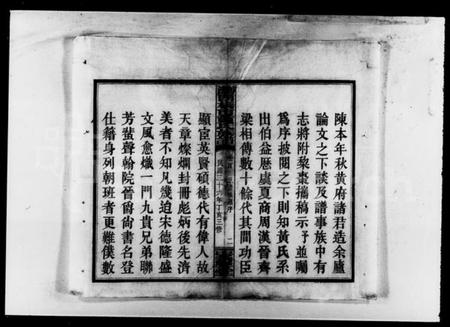 陳本年秋黃府諸君造余廬
論文之下談及譜事族中有
志將附黎棗攜稿示予並囑
爲序披閱之下則知黃氏系
出伯益歷虞夏商周漢晉齊
梁相傳數十餘代其間功臣
民國三十六年丁亥三修
二
顯宦英賢碩德代有偉人故
天章燦爛封冊彪炳後先濟
美者不知凡幾迫宋德隆盛
文風愈熾一門九貴兄弟聯
芳蜚聲翰院晉爵尙書名登
仕籍身列朝班者更難僕數